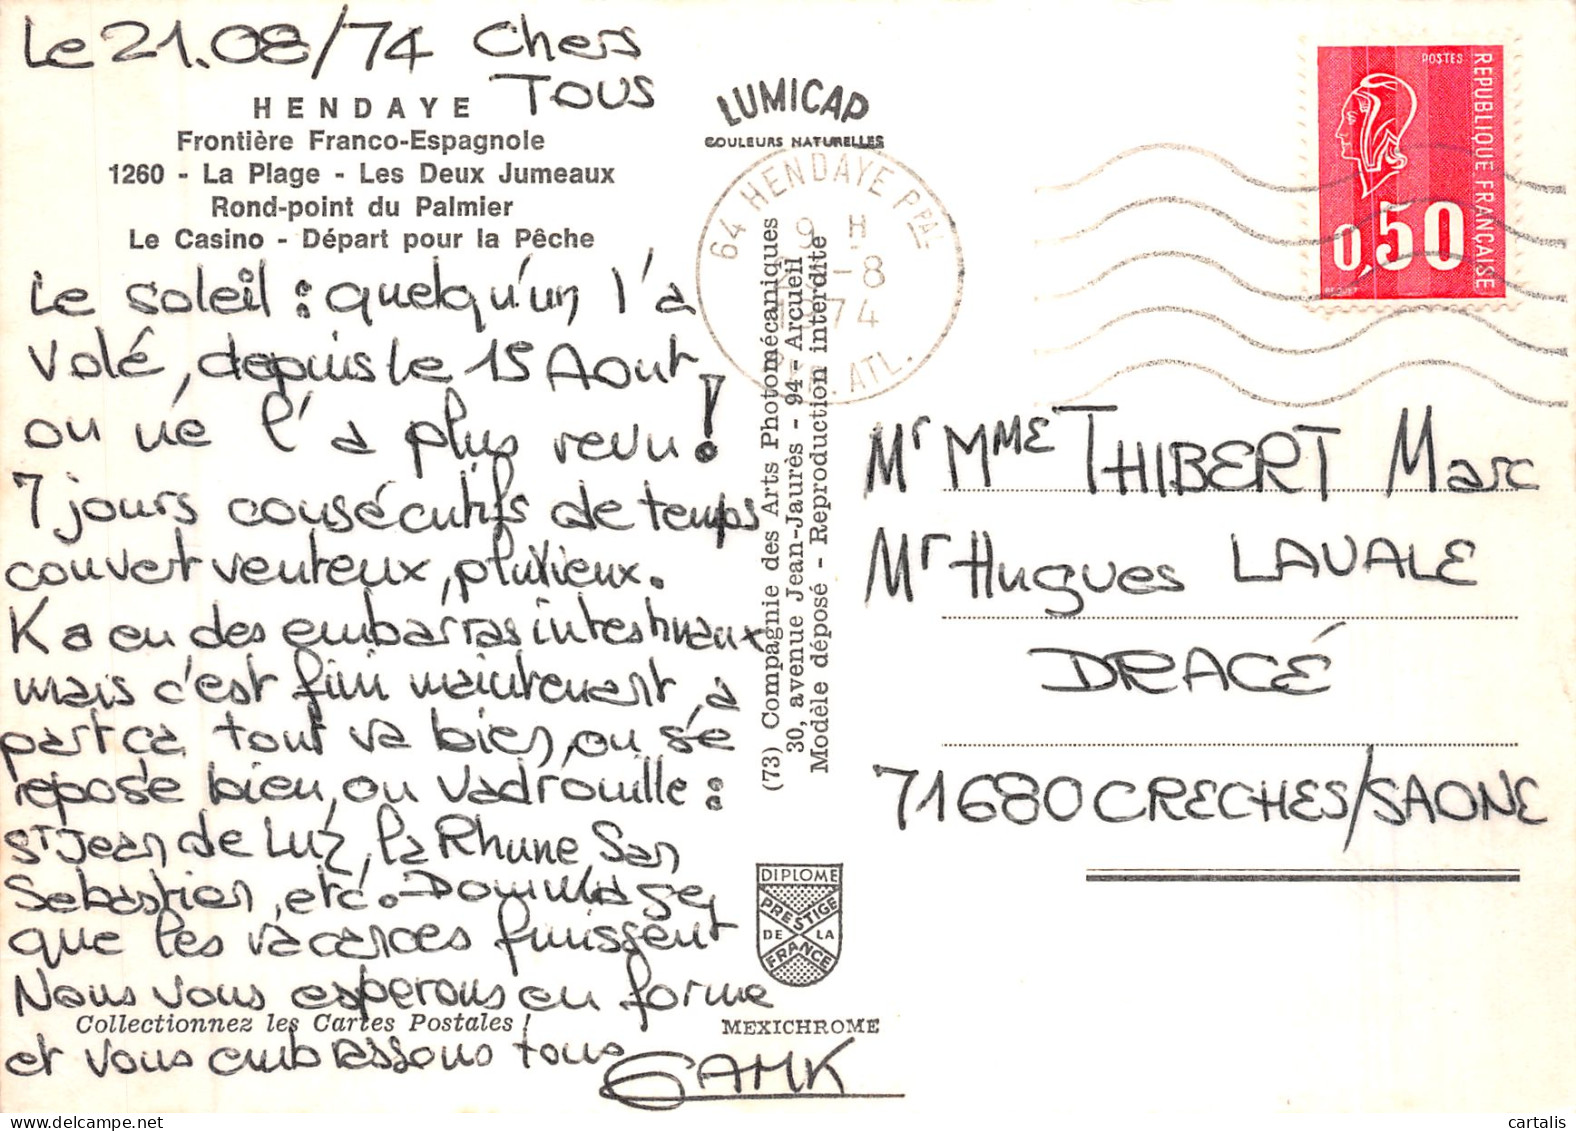 Le 21.08/74 Chers
TOUS
HENDAYE
Frontière Franco-Espagnole
1260 - La Plage - Les Deux Jumeaux
Rond-point du Palmier
Le Casino - Départ pour la Pêche
Le soleil : quelqu'un l'a
volé, depuis le 15 Aout
on ne l'a plus revu !
7 jours consécutifs de temps
couvert venteux, pluvieux.
K a eu des embarras intestinaux
mais c'est fini maintenant, à
part ca tout va bien, on se
repose bien, on vadrouille :
St Jean de Luz, la Rhune, San
Sebastien, etc. Dommage,
que les vacances finissent
Nous vous esperons en forme
et vous embrassons tous
GAMK
Collectionnez les Cartes Postales !
LUMICAP
COULEURS NATURELLES
64 HENDAYE PPAL
9 H
-8
74
. ATL.
(73) Compagnie des Arts Photomécaniques
30, avenue Jean-Jaurès - 94 - Arcueil
Modèle déposé - Reproduction interdite
DIPLOME
PRESTIGE
DE LA
FRANCE
MEXICHROME
POSTES
REPUBLIQUE FRANÇAISE
0,50
Mr MME THIBERT Marc
Mr Hugues LAVALE
DRACÉ
71680 CRECHES/SAONE
cartalis